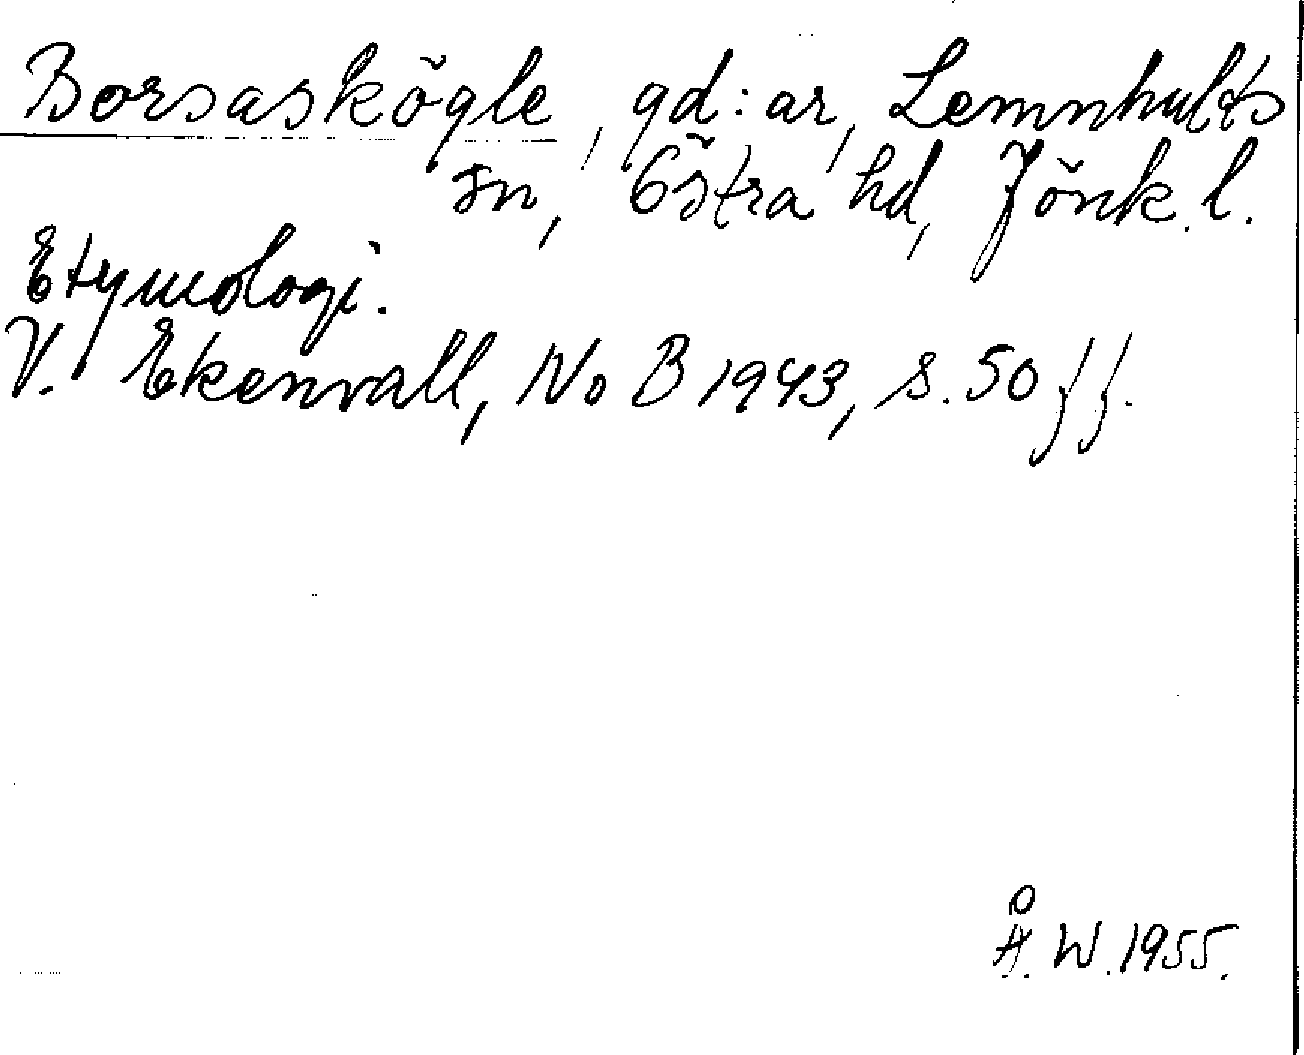 Borsaskögle, gd:ar, Lemnhults
sn, Östra hd, Jönk. l.
Etymologi.
V. Ekenvall, NoB 1943, s. 50 ff.
Å. W. 1955.